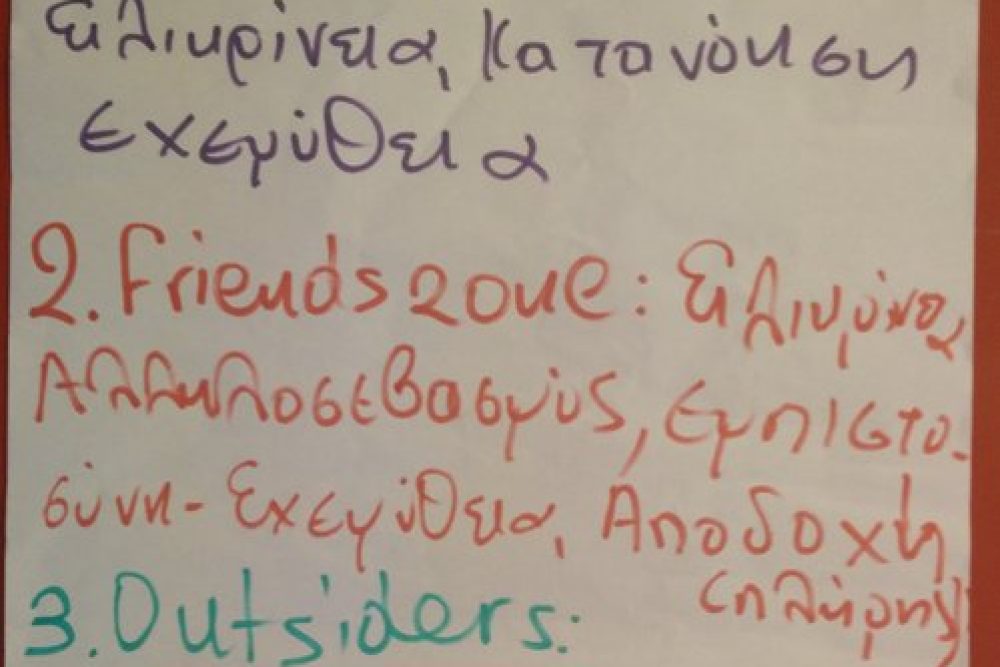 Ειλικρίνεια, Κατανόηση
εχεμύθεια
2. Friends zone: Ειλικρίνεια,
Αλληλοσεβασμός, εμπιστο-
σύνη - Εχεμύθεια, Αποδοχή
(πλήρης)
3. Outsiders: